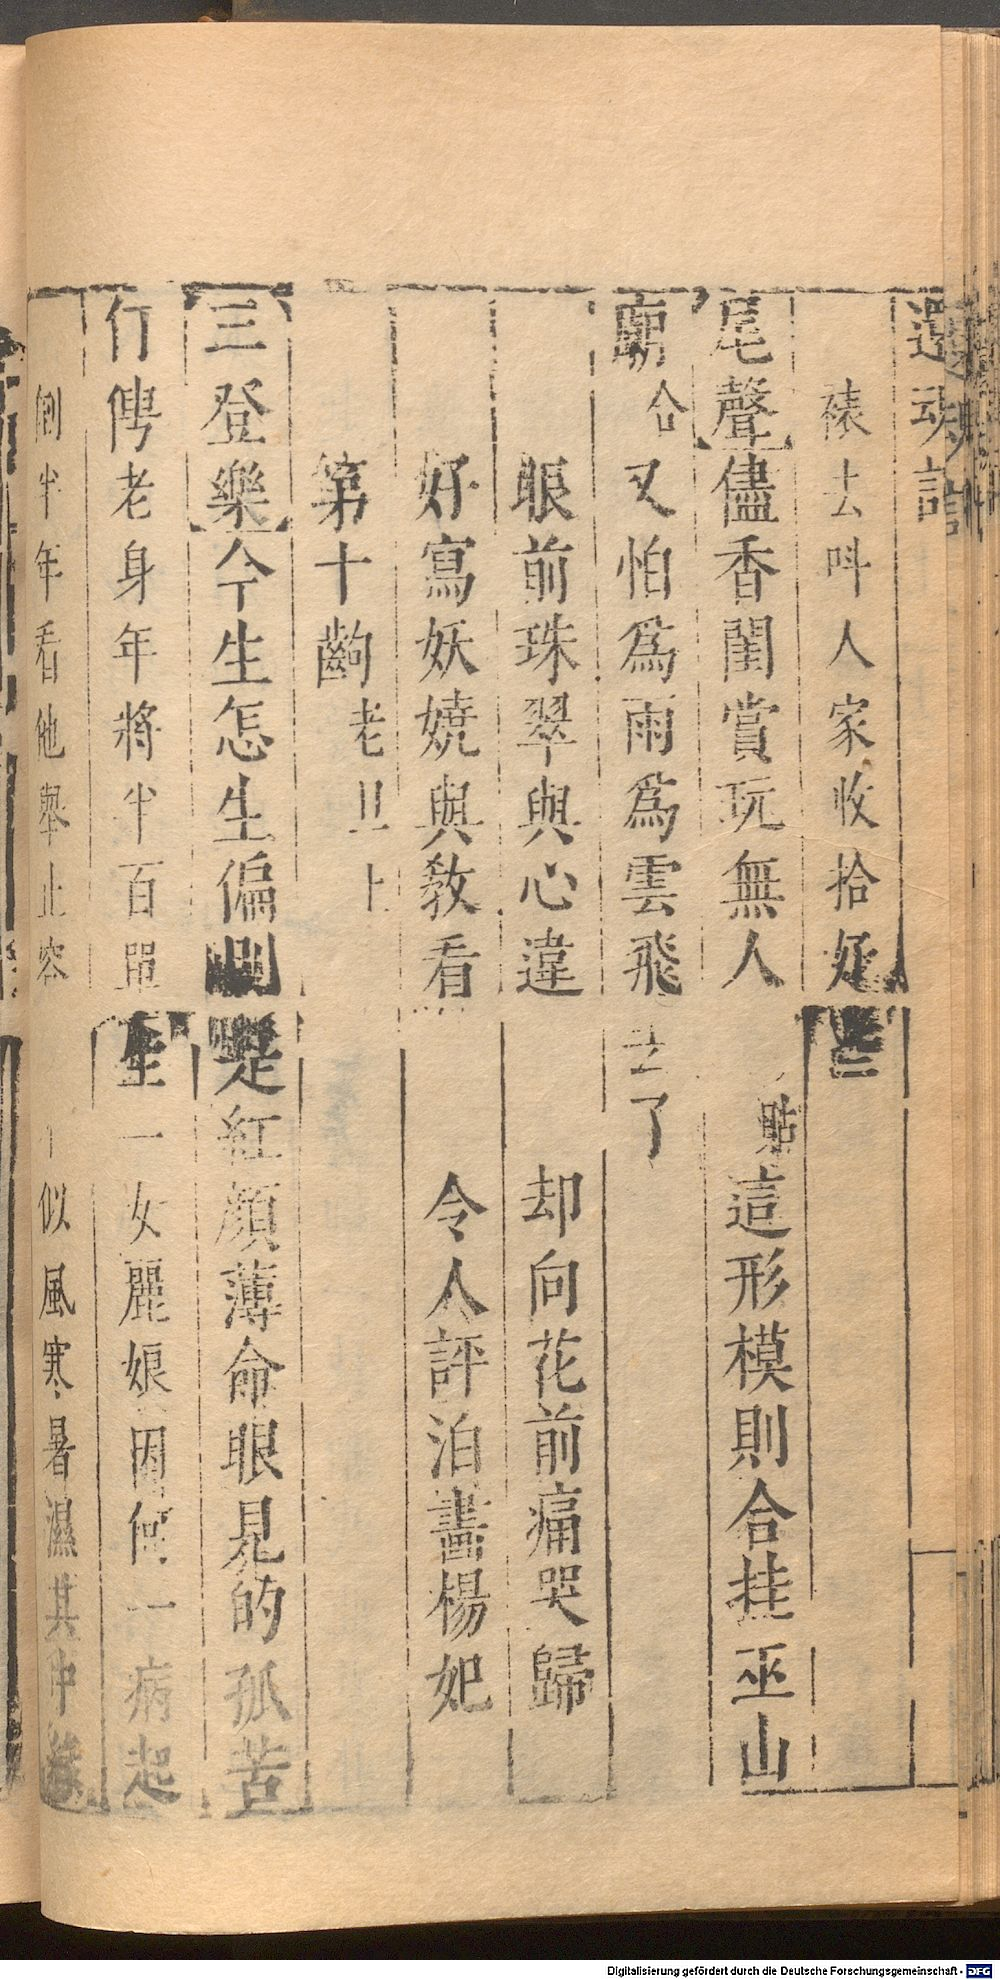 還魂記
裱去呌人家收拾好些
【尾聲】儘香閨賞玩無人 貼 這形模則合挂巫山
廟 合 又怕爲雨爲雲飛去了
眼前珠翠與心違 却向花前痛哭歸
好寫妖嬈與教看 令人評泊畫楊妃
第十齣 老旦上
【三登樂】今生怎生偏則是紅顏薄命眼見的孤苦
仃俜老身年將半百單生一女麗娘因何一病起
倒半年看他舉止容 似風寒暑濕其中緣
Digitalisierung gefördert durch die Deutsche Forschungsgemeinschaft - DFG